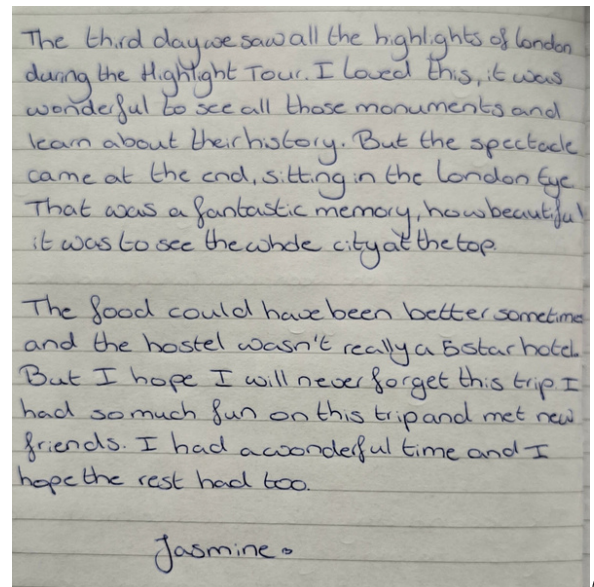 The third day we saw all the highlights of London
during the Highlight Tour. I loved this, it was
wonderful to see all those monuments and
learn about their history. But the spectacle
came at the end, sitting in the London Eye
That was a fantastic memory, how beautiful
it was to see the whole city at the top.
The food could have been better sometime
and the hostel wasn't really a 5 star hotel.
But I hope I will never forget this trip. I
had so much fun on this trip and met new
friends. I had a wonderful time and I
hope the rest had too.
Jasmine.